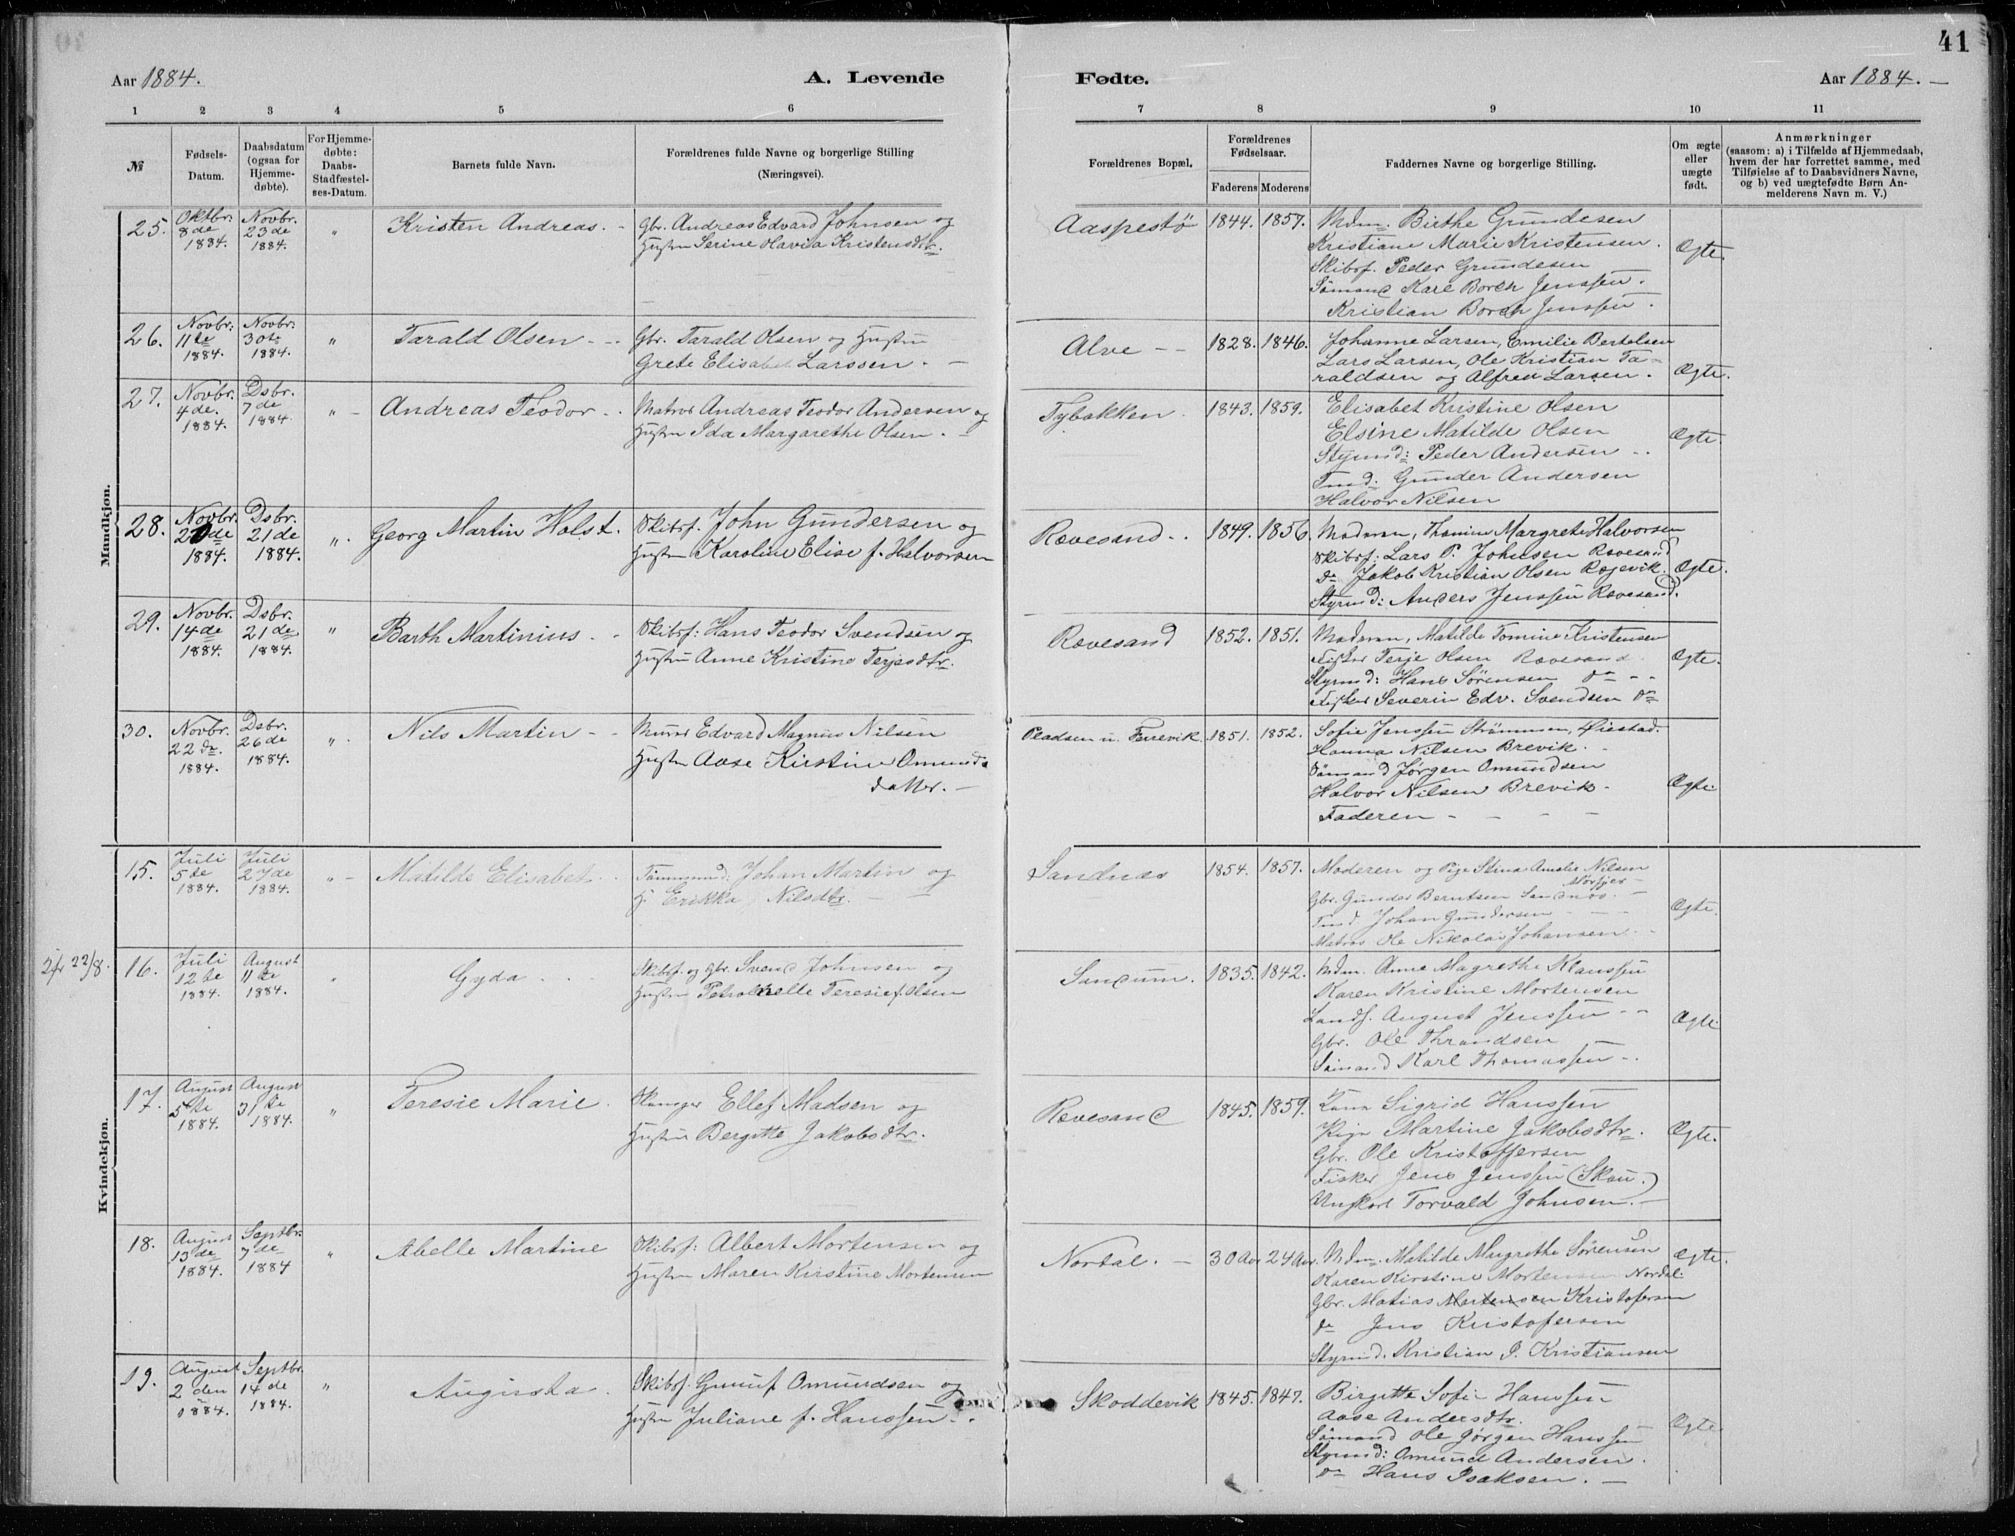 41
Aar 1884. A. Levende Fødte. Aar 1884. —
1 2 3 4 5 6 7 8 9 10 11
№
Fødsels-
Datum.
Daabsdatum
(ogsaa for
Hjemme-
døbte).
For Hjemme-
døbte:
Daabs-
Stadfæstel-
ses-Datum.
Barnets fulde Navn.
Forældrenes fulde Navne og borgerlige Stilling
(Næringsvei).
Forældrenes Bopæl.
Forældrenes
Fødselsaar.
Faderens Moderens
Faddernes Navne og borgerlige Stilling.
Om ægte
eller
uægte
født.
Anmærkninger
(saasom: a) i Tilfælde af Hjemmedaab,
hvem der har forrettet samme, med
Tilføielse af to Daabsvidners Navne,
og b) ved uægtefødte Børn An-
melderens Navn m. V.)
Mandkjøn.
25.
Oktbr.
8de
1884.
Novbr.
23de
1884.
"
Kristen Andreas. -
Gbr. Andreas Edvard Johnsen og
Hustru Serine Olavia Kristensdtr.
Aaspestø
1844. 1857.
Mdm. Birthe Grundesen
Kristiane Marie Kristensen.
Skibsf. Peder Grundesen
Sømand Karl Borch Jenssen.
Kristian Borch Jenssen.
Ægte
26.
Novbr.
11te
1884.
Novbr.
30te
1884.
"
Tarald Olsen - -
Gbr. Tarald Olsen og Hustru
Grete Elisabet Larssen. -
Alve - -
1828. 1846.
Johanne Larsen, Emilie Bertelsen
Lars Larsen, Ole Kristian Ta-
raldsen og Alfred Larsen.
Ægte.
27.
Novbr.
4de.
1884.
Dsbr.
7de
1884.
" -
Andreas Teodor - .
Matros Andreas Teodor Andersen og
Hustru Ida Margarethe Olsen. -
Tybakken.
1843. 1859.
Elisabet Kristine Olsen
Elsine Matilde Olsen
Styrmd: Peder Andersen - .
Tmd. Gunder Andersen
Halvor Nilsen
Ægte
28.
Novbr.
20de
1884.
Dsbr.
21de
1884.
".
Georg Martin Holst.
Skibsf. John Gundersen og
Hustru Karoline Elise f. Halvorsen
Rævesand. .
1849. 1856.
Moderen, Thomine Margrete Halvorsen
Skibsf: Lars P. Johnsen Rævesand
Do Jakob Kristian Olsen Rægevik.
Styrmd: Anders Jenssen Rævesand.
Ægte.
29.
Novbr.
14de
1884.
Dsbr.
21de
1884.
"
Barth Martinius. -
Skibsf: Hans Teodor Svendsen og
Hustru Anne Kristine Terjesdtr.
Rævesand
1852. 1851.
Moderen, Matilde Tomine Kristensen
Fisker Terje Olsen Rævesand
Styrmd: Hans Sørensen do - -
Fisker Severin Edv. Svendsen do
Ægte.
30.
Novbr.
22de.
1884.
Dsbr.
26de
1884.
".
Nils Martin - -
Murer Edvard Magnus Nilsen
Hustru Aase Kirstine Omunds
datter. -
Pladsen u. Færevik.
1851. 1852.
Sofie Jenssen Strømmen, Øiestad.
Hanna Nilsen Brevik. .
Sømand Jørgen Omundsen
Halvor Nilsen Brevik.
Faderen - - - -
Ægte.
Kvindekjøn.
15.
Juli
5de
1884.
Juli
27de
1884.
" -
Matilde Elisabet. .
Tømmermd: Johan Martin og
H. Erikka Nilsdtr. -
Sandnæs
1854. 1857.
Moderen og Pige Stina Amalie Nilsen
Gbr. Gunder Berntsen Sandnæs. -
Tmd Johan Gundersen - - -
Matros Ole Nikolai Johansen. -
Ægte.
22/8.
16.
Juli
12te
1884.
August
11te
1884.
"
Gyda . .
Skibsf. og Gbr. Svend Johnsen og
Hustru Petronelle Teresie f. Olsen
Sandum.
1835. 1842.
Mdm. Anne Magrethe Klaussen
Karen Kristine Mortensen
Landh. August Jenssen - -
Gbr. Ole Thrandsen
Sømand Karl Thomassen - .
Ægte.
17.
August
5te
1884.
August
31te
1884.
"
Teresie Marie.
Ellef Madsen og
Hustru Bergitte Jakobsdtr.
Rævesand
1845. 1859.
Kona Sigrid Hanssen
Pige Martine Jakobsdtr.
Gbr. Ole Kristoffersen
Fisker Jens Jenssen (Skau.)
Ungkarl Torvald Johnsen. -
Ægte.
18.
August
13de
1884.
Septbr.
7de
1884
"
Abelle Martine
Skibsf: Albert Mortensen og
Hustru Maren Kirstine Mortensen
Nordal. -
30 Aar 24 Aar.
Mdm. Matilde Margrethe Sørensen
Karen Kirstine Mortensen Nordal.
Gbr. Matias Mortensen Kristofersen
do Jens Kristofersen
Styrmd. Kristian J. Kristiansen
Ægte.
19.
August
2den
1884.
Septbr.
14de
1884.
"
Augusta.
Skibsf. Gunuf Omundsen og
Hustru Juliane f. Hanssen. .
Skoddevik
1845. 1847.
Birgitte Sofie Hanssen
Aase Andersdtr.
Sømand Ole Jørgen Hanssen
Styrmd: Omund Andersen.
do Hans Isaksen. -
Ægte